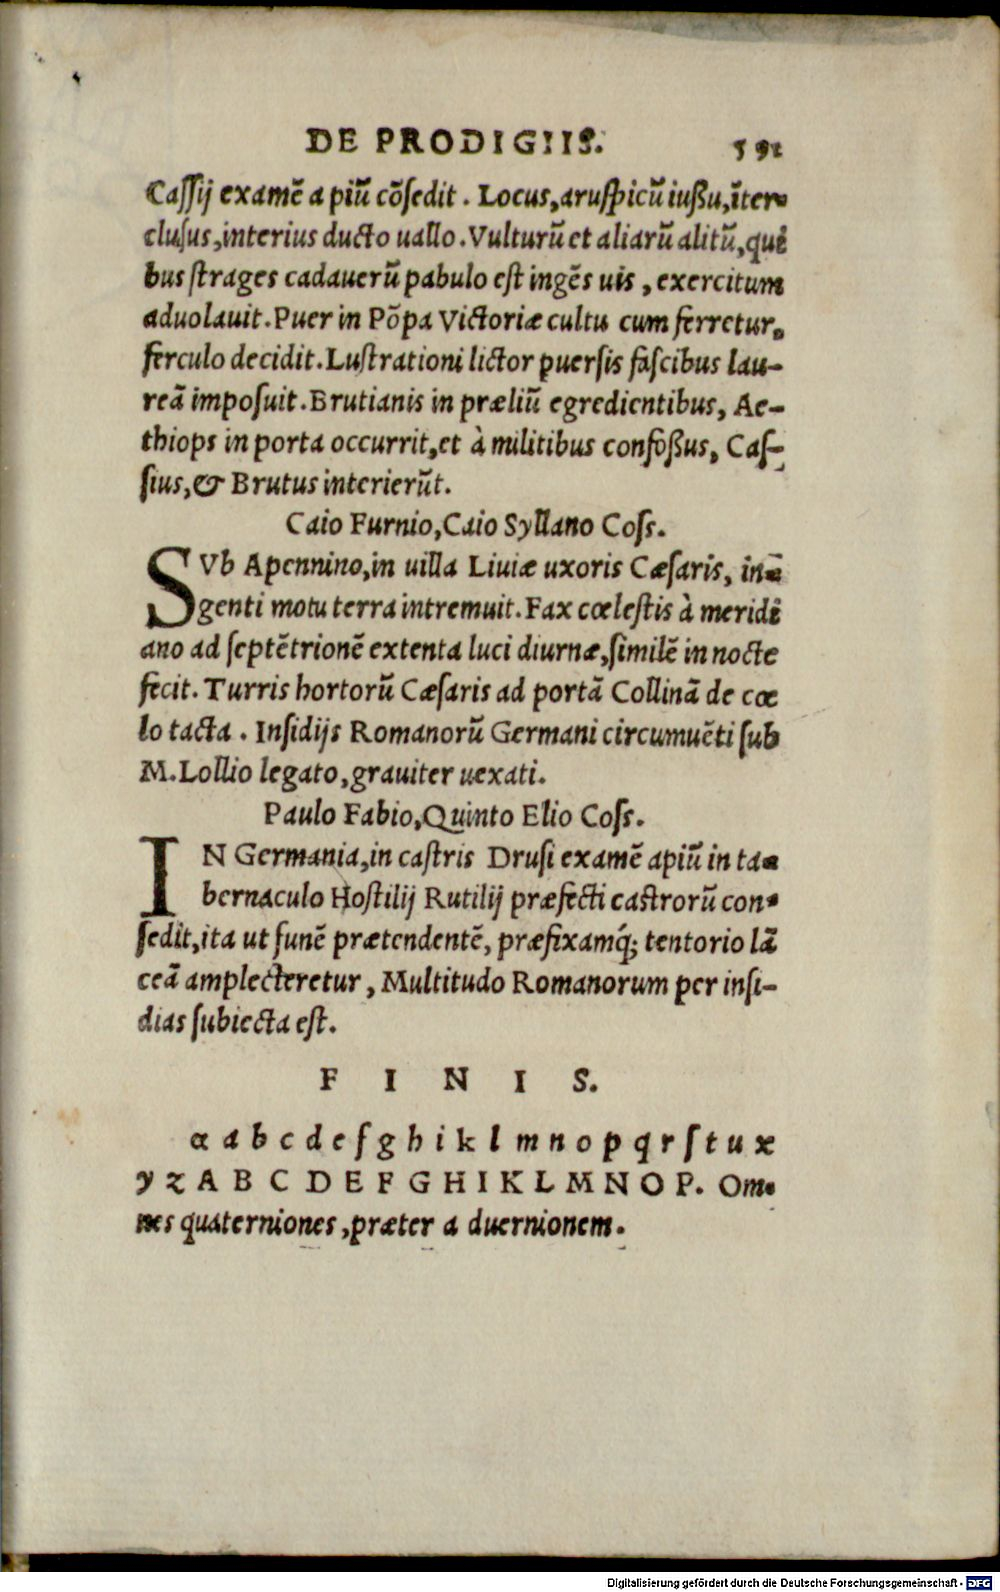 DE PRODIGIIS. 591
Caſſij examē a piū cōſedit. Locus, aruſpicū iußu, īter-
cluſus, interius ducto uallo. Vulturū et aliarū alitū, qui
bus ſtrages cadauerū pabulo eſt ingēs uis, exercitum
aduolauit. Puer in Pōpa Victoriæ cultu cum ferretur,
ferculo decidit. Luſtrationi lictor puerſis faſcibus lau-
reā impoſuit. Brutianis in præliū egredientibus, Ae-
thiops in porta occurrit, et à militibus confoßus, Caſ-
ſius, & Brutus interierūt.
Caio Furnio, Caio Syllano Coſs.
SVb Apennino, in uilla Liuiæ uxoris Cæſaris, in-
genti motu terra intremuit. Fax cœleſtis à meridi
ano ad ſeptētrionē extenta luci diurnæ, ſimilē in nocte
fecit. Turris hortorū Cæſaris ad portā Collinā de cœ
lo tacta. Inſidijs Romanorū Germani circumuēti ſub
M. Lollio legato, grauiter uexati.
Paulo Fabio, Quinto Elio Coſs.
IN Germania, in caſtris Druſi examē apiū in ta-
bernaculo Hoſtilij Rutilij præfecti caſtrorū con-
ſedit, ita ut funē prætendentē, præfixamq́; tentorio lā
ceā amplecteretur, Multitudo Romanorum per inſi-
dias ſubiecta eſt.
F I N I S.
α a b c d e f g h i k l m n o p q r ſ t u x
y z A B C D E F G H I K L M N O P. Om-
nes quaterniones, præter a duernionem.
Digitalisierung gefördert durch die Deutsche Forschungsgemeinschaft - DFG